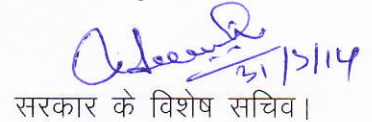 31/3/14
सरकार के विशेष सचिव।